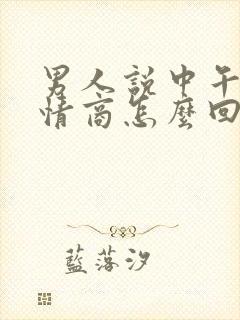 男人說中午
情商怎麼回
藍落汐